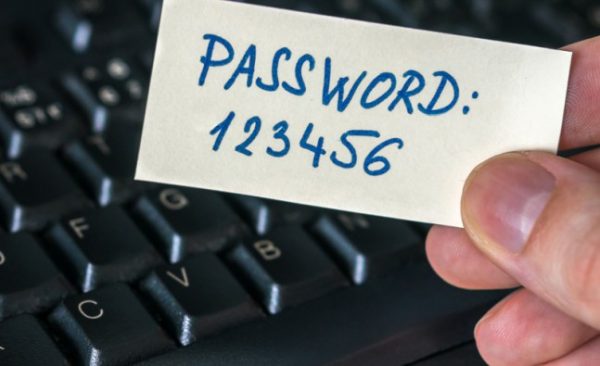 PASSWORD:
123456
R
T
F
G
C
V
B